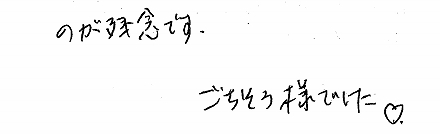 のが残念です.
ごちそう様でした♡.